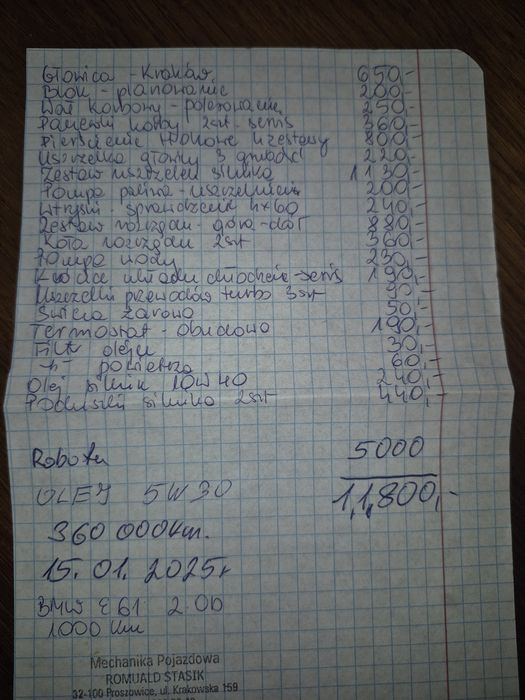 Głowica - Kraków 650,-
Blok - planowanie 200,-
Wał korbowy - polerowanie 250,-
Panewki korby 2szt. semis 360,-
Pierścienie tłokowe 4 zestawy 800,-
Uszczelka głowicy 3 grubość 220,-
Zestaw uszczelek silnika 1130,-
Pompa paliwa - uszczelnienie 200,-
Wtryski - sprawdzenie 4x60 240,-
Zestaw rozrządu - góra - dół 880,-
Koła rozrządu 2szt 360,-
Pompa wody 230,-
układu chłodzenia - semis 190,-
Uszczelki przewodów turbo 3szt
Świeca żarowa 50,-
Termostat - obudowa 190,-
Filtr oleju 30,-
-"- powietrza 60,-
Olej silnik 10W40 240,-
Poduszki silnika 2szt 440,-
Robota 5000
OLEJ 5W30 11,800,-
360 000km.
15.01.2025r
BMW E61 2.0D
1000 km
Mechanika Pojazdowa
ROMUALD STASIK
32-100 Proszowice, ul. Krakowska 159